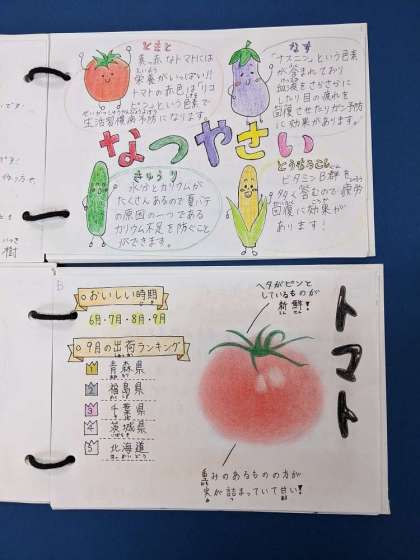 とまと
真っ赤なトマトには
栄養がいっぱい!!
トマトの赤色は「リコ
ピン」という色素で
生活習慣病予防になります。
なす
「ナスニン」という色素
が含まれており
血液をさらさらに
したり目の疲れを
回復させたりガン予防
に効果があります。
なつやさい
きゅうり
水分とカリウムが
たくさんあるので夏バテ
の原因の一つである
カリウム不足を防ぐこと
ができます。
とうもろこし
ビタミンB群を
多く含むので疲労
回復に効果が
あります!
樹
B
○おいしい時期
6月・7月・8月・9月
○9月の出荷ランキング
1 青森県
2 福島県
3 千葉県
4 茨城県
5 北海道
ヘタがピンと
しているものが
新鮮!
トマト
重みのあるものの方が
実が詰まっていて甘い!